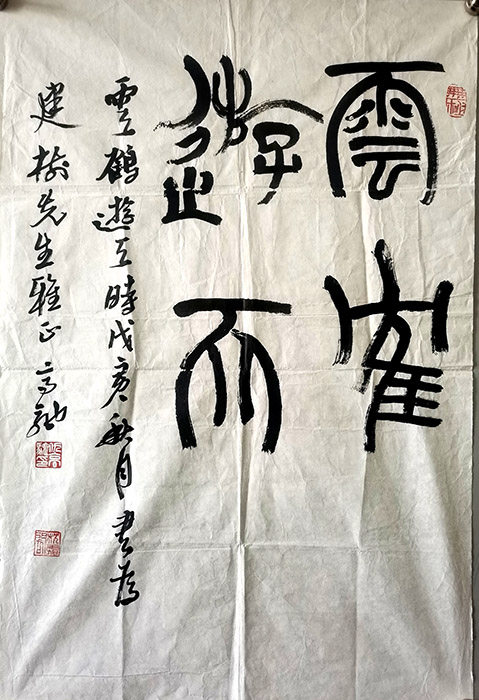 雲隺
遊天
雲鶴遊天時戊寅秋月書為
建樹先生雅正